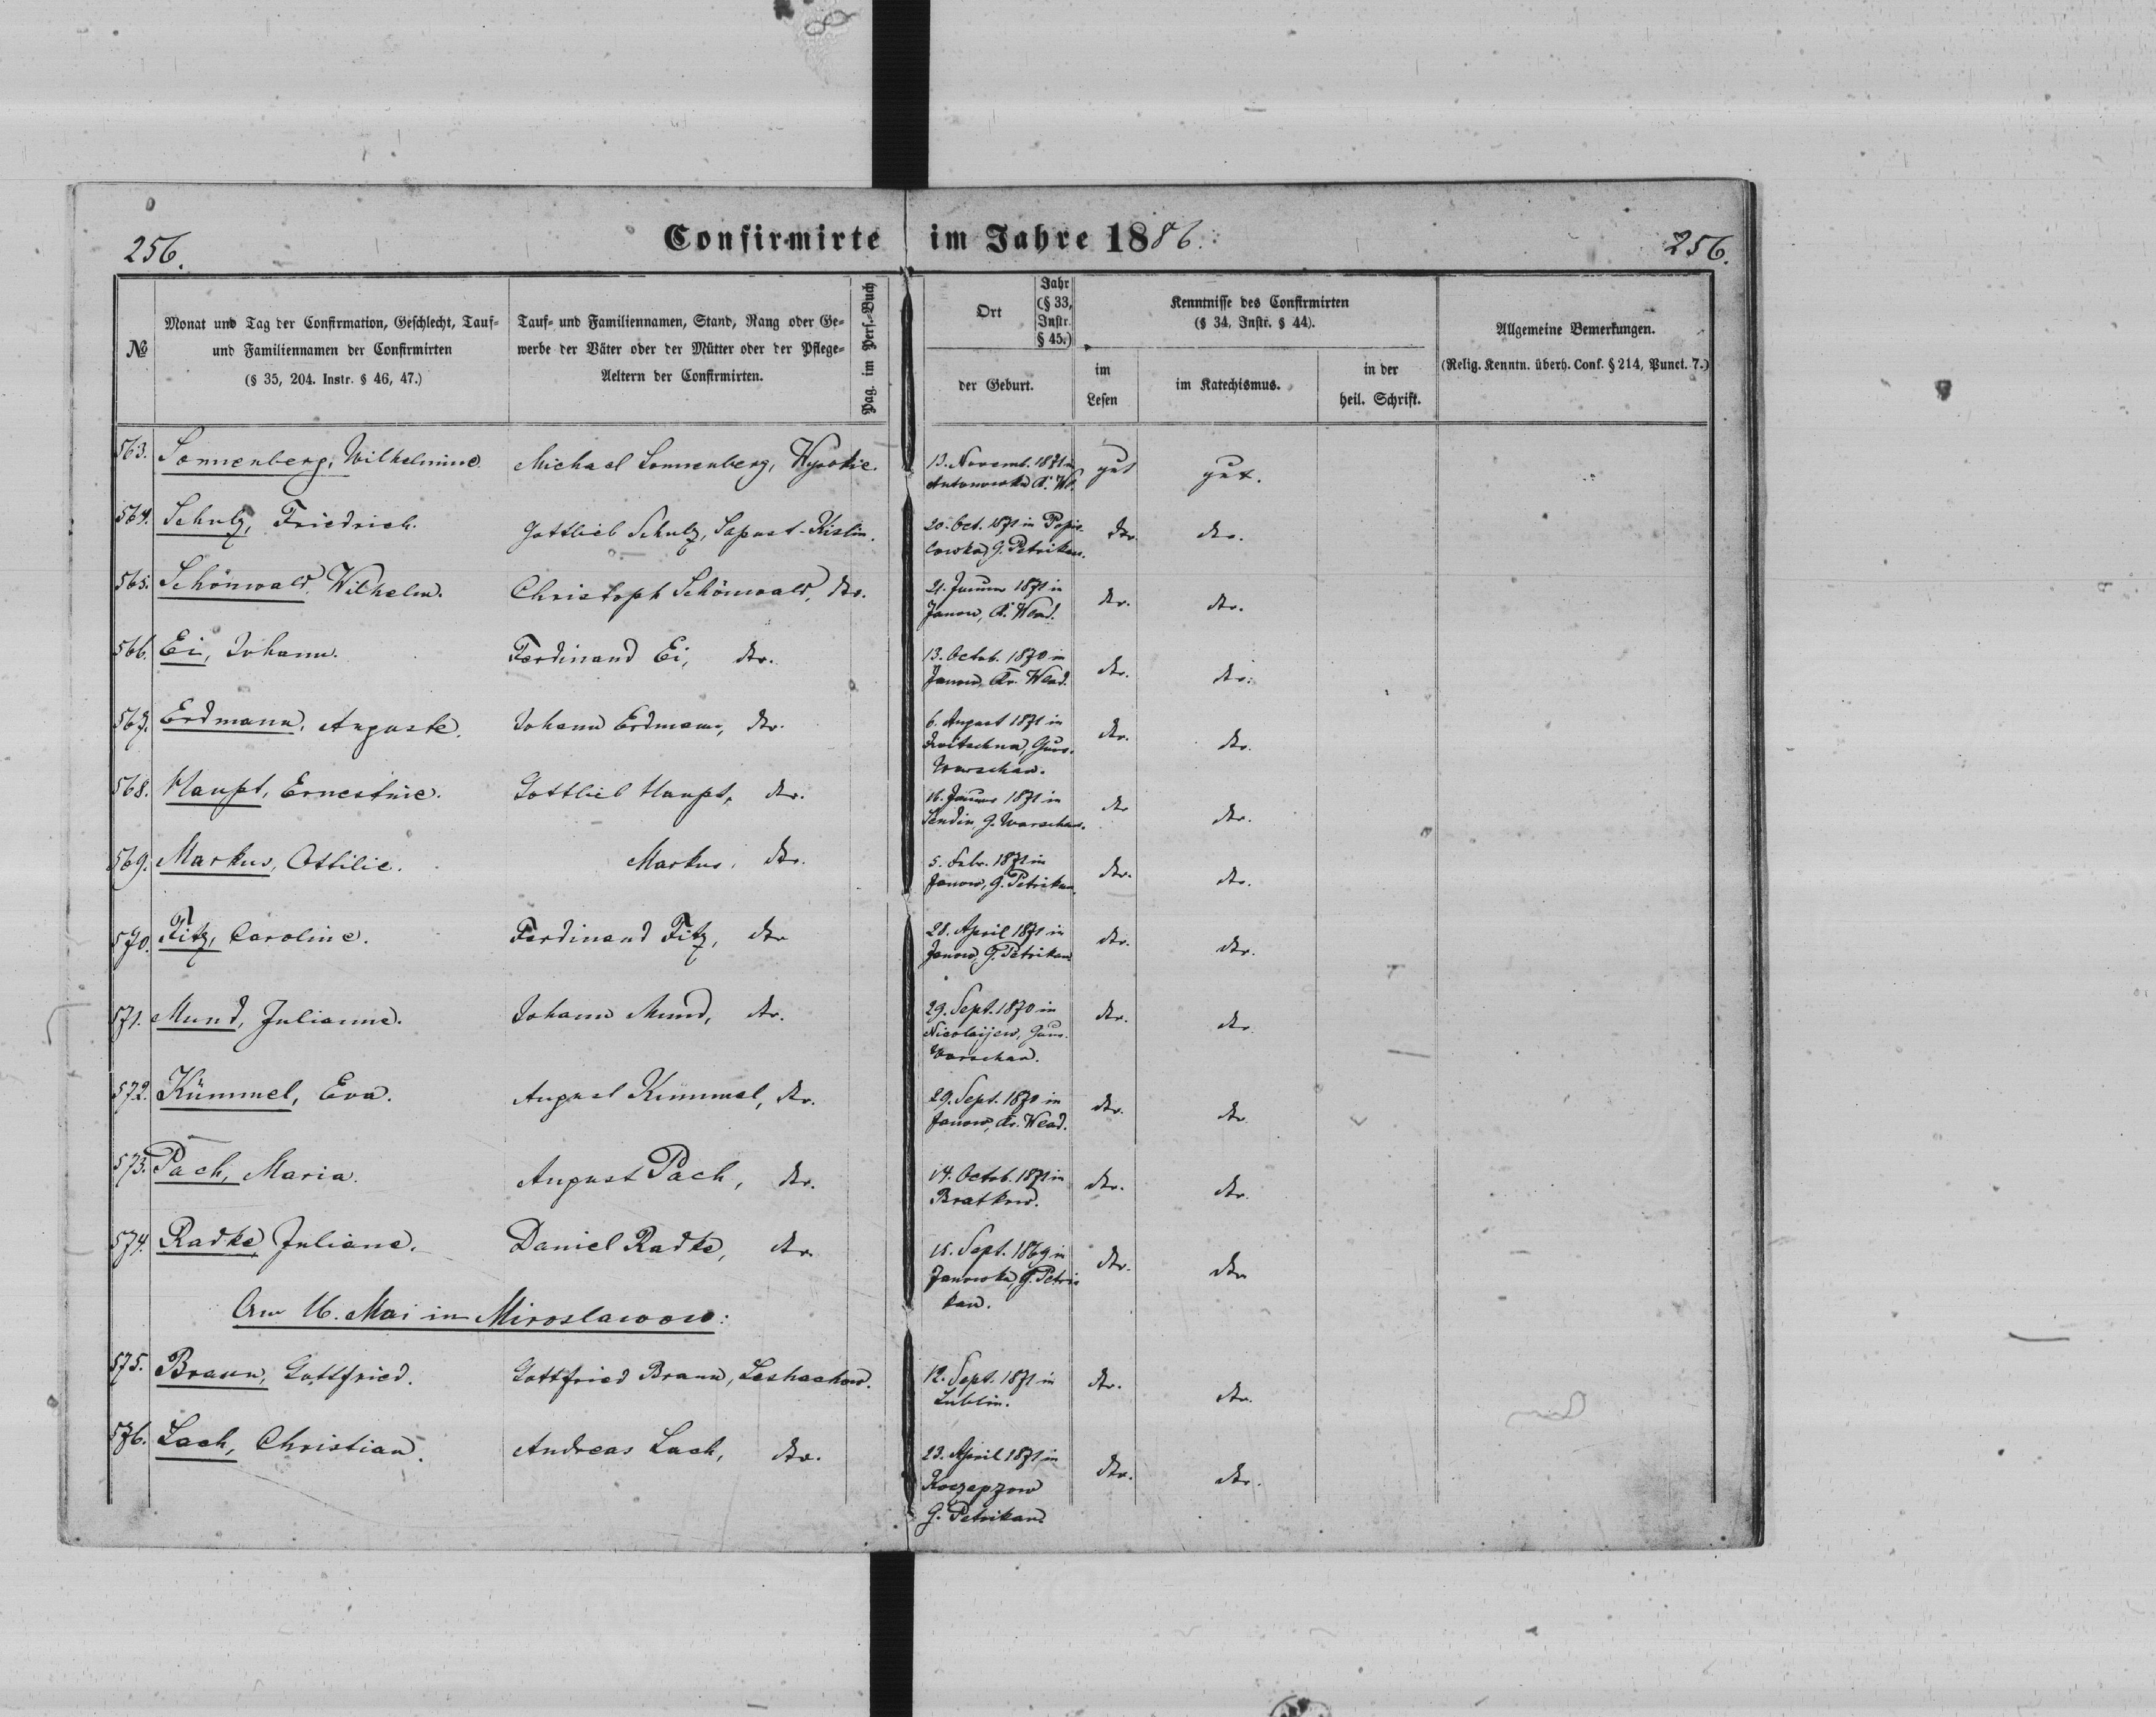 256.
Confirmirte im Jahre 1886.
256.
№
Monat und Tag der Confirmation, Geschlecht, Tauf-
und Familiennamen der Confirmirten
(§ 35, 204. Instr. § 46, 47.)
Tauf- und Familiennamen, Stand, Rang oder Ge-
werbe der Väter oder der Mütter oder der Pflege-
Aeltern der Confirmirten.
Pag. im Pers.-Buch
Ort
Jahr
(§ 33,
Instr.
§ 45.)
der Geburt.
Kenntnisse des Confirmirten
(§ 34, Instr. § 44).
im
Lesen
im Katechismus.
in der
heil. Schrift.
Allgemeine Bemerkungen.
(Relig. Kenntn. überh. Conf. § 214, Punct. 7.)
563. Sonnenberg, Wilhelmine. Michael Sonnenberg, 13. Novemb. 1871 in gut gut.
Antonowka K. Wl.
564. Schulz, Friedrich. Gottlieb Schulz, Sapust-Kislin. 20. Oct. 1871 in Popie- dto. dto.
lowka, G. Petrikau.
565. Schönwald, Wilhelm. Christoph Schönwald, dto. 21. Januar 1871 in dto. dto.
Janow, K. Wlad.
566. Ei, Johann. Ferdinand Ei, dto. 13. Octob. 1870 in dto. dto.
Janow, Kr. Wlad.
567. Erdmann, Auguste. Johann Erdmann, dto. 6. August 1871 in dto. dto.
Guv.
Warschau.
568. Haupt, Ernestine. Gottlieb Haupt, dto. 16. Januar 1871 in dto dto.
Sendin, G. Warschau.
569. Markus, Ottilie. Markus, dto. 5. Febr. 1871 in dto. dto.
Janow, G. Petrikau.
570. Fitz, Caroline. Ferdinand Fitz, dto 28. April 1871 in dto. dto.
Janow, G. Petrikau
571. Mund, Julianne. Johann Mund, dto. 29. Sept. 1870 in dto. dto.
Nicolaijew, Guv.
Warschau.
572. Kümmel, Eva. August Kümmel, dto. 29. Sept. 1870 in dto. dto.
Janow, Kr. Wlad.
573. Pach, Maria. August Pach, dto. 14. Octob. 1871 in dto. dto.
Bratkow.
574. Radke, Juliane. Daniel Radke, dto. 15. Sept. 1869 in dto. dto.
Janowka, G. Petri-
kau.
Am 16. Mai in Miroslawow:
575. Braun, Gottfried. Gottfried Braun, Leshachow. 12. Sept. 1871 in dto. dto.
Lublin.
576. Lach, Christian. Andreas Lach, dto. 23. April 1871 in dto. dto.
G. Petrikau